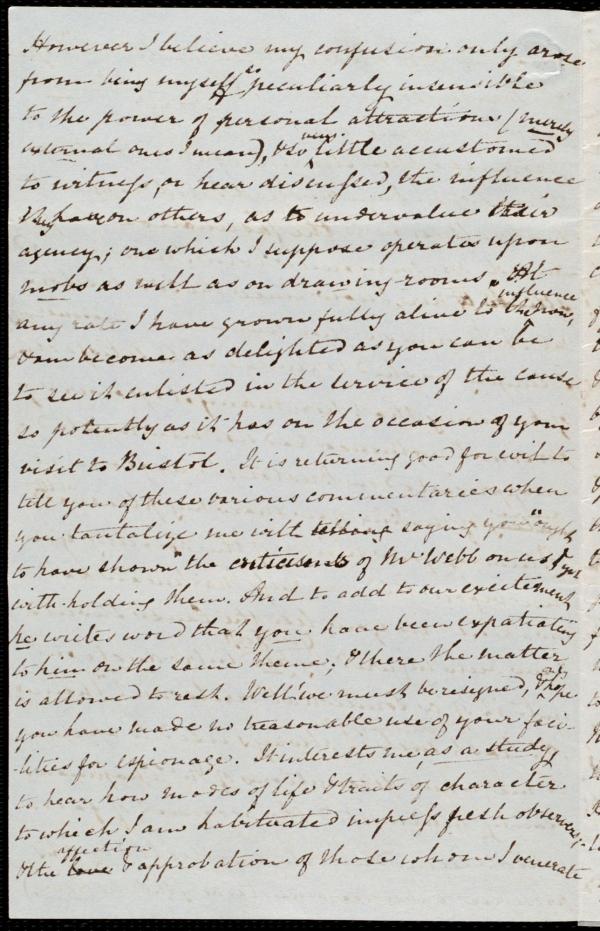 However I believe my confusion only arose
from being myself so peculiarly insensible
to the power of personal attractions (merely
external ones I mean), & so very little accustomed
to witness, or hear discussed, the influence
they have on others, as to undervalue their
agency; one which I suppose operates upon
mobs as well as on drawing-rooms. At
any rate I have grown fully alive to the influence now,
& am become as delighted as you can be
to see it enlisted in the service of the cause
so potently as it has on the occasion of your
visit to Bristol. It is returning good for evil to
tell you of these various commentaries when
you tantalize me with telling saying you "ought
to have shown" the criticisms of Mr Webb on us & yet
with-holding them. And to add to our excitement
he writes word that you have been expatiating
to him on the same theme; & there the matter
is allowed to rest. Well! we must be resigned, & hope
you have made no treasonable use of your faci-
lities for espionage. It interests me, as a study,
to hear how modes of life & traits of character
to which I am habituated impress fresh observers;
& the love affection & approbation of those whom I venerate